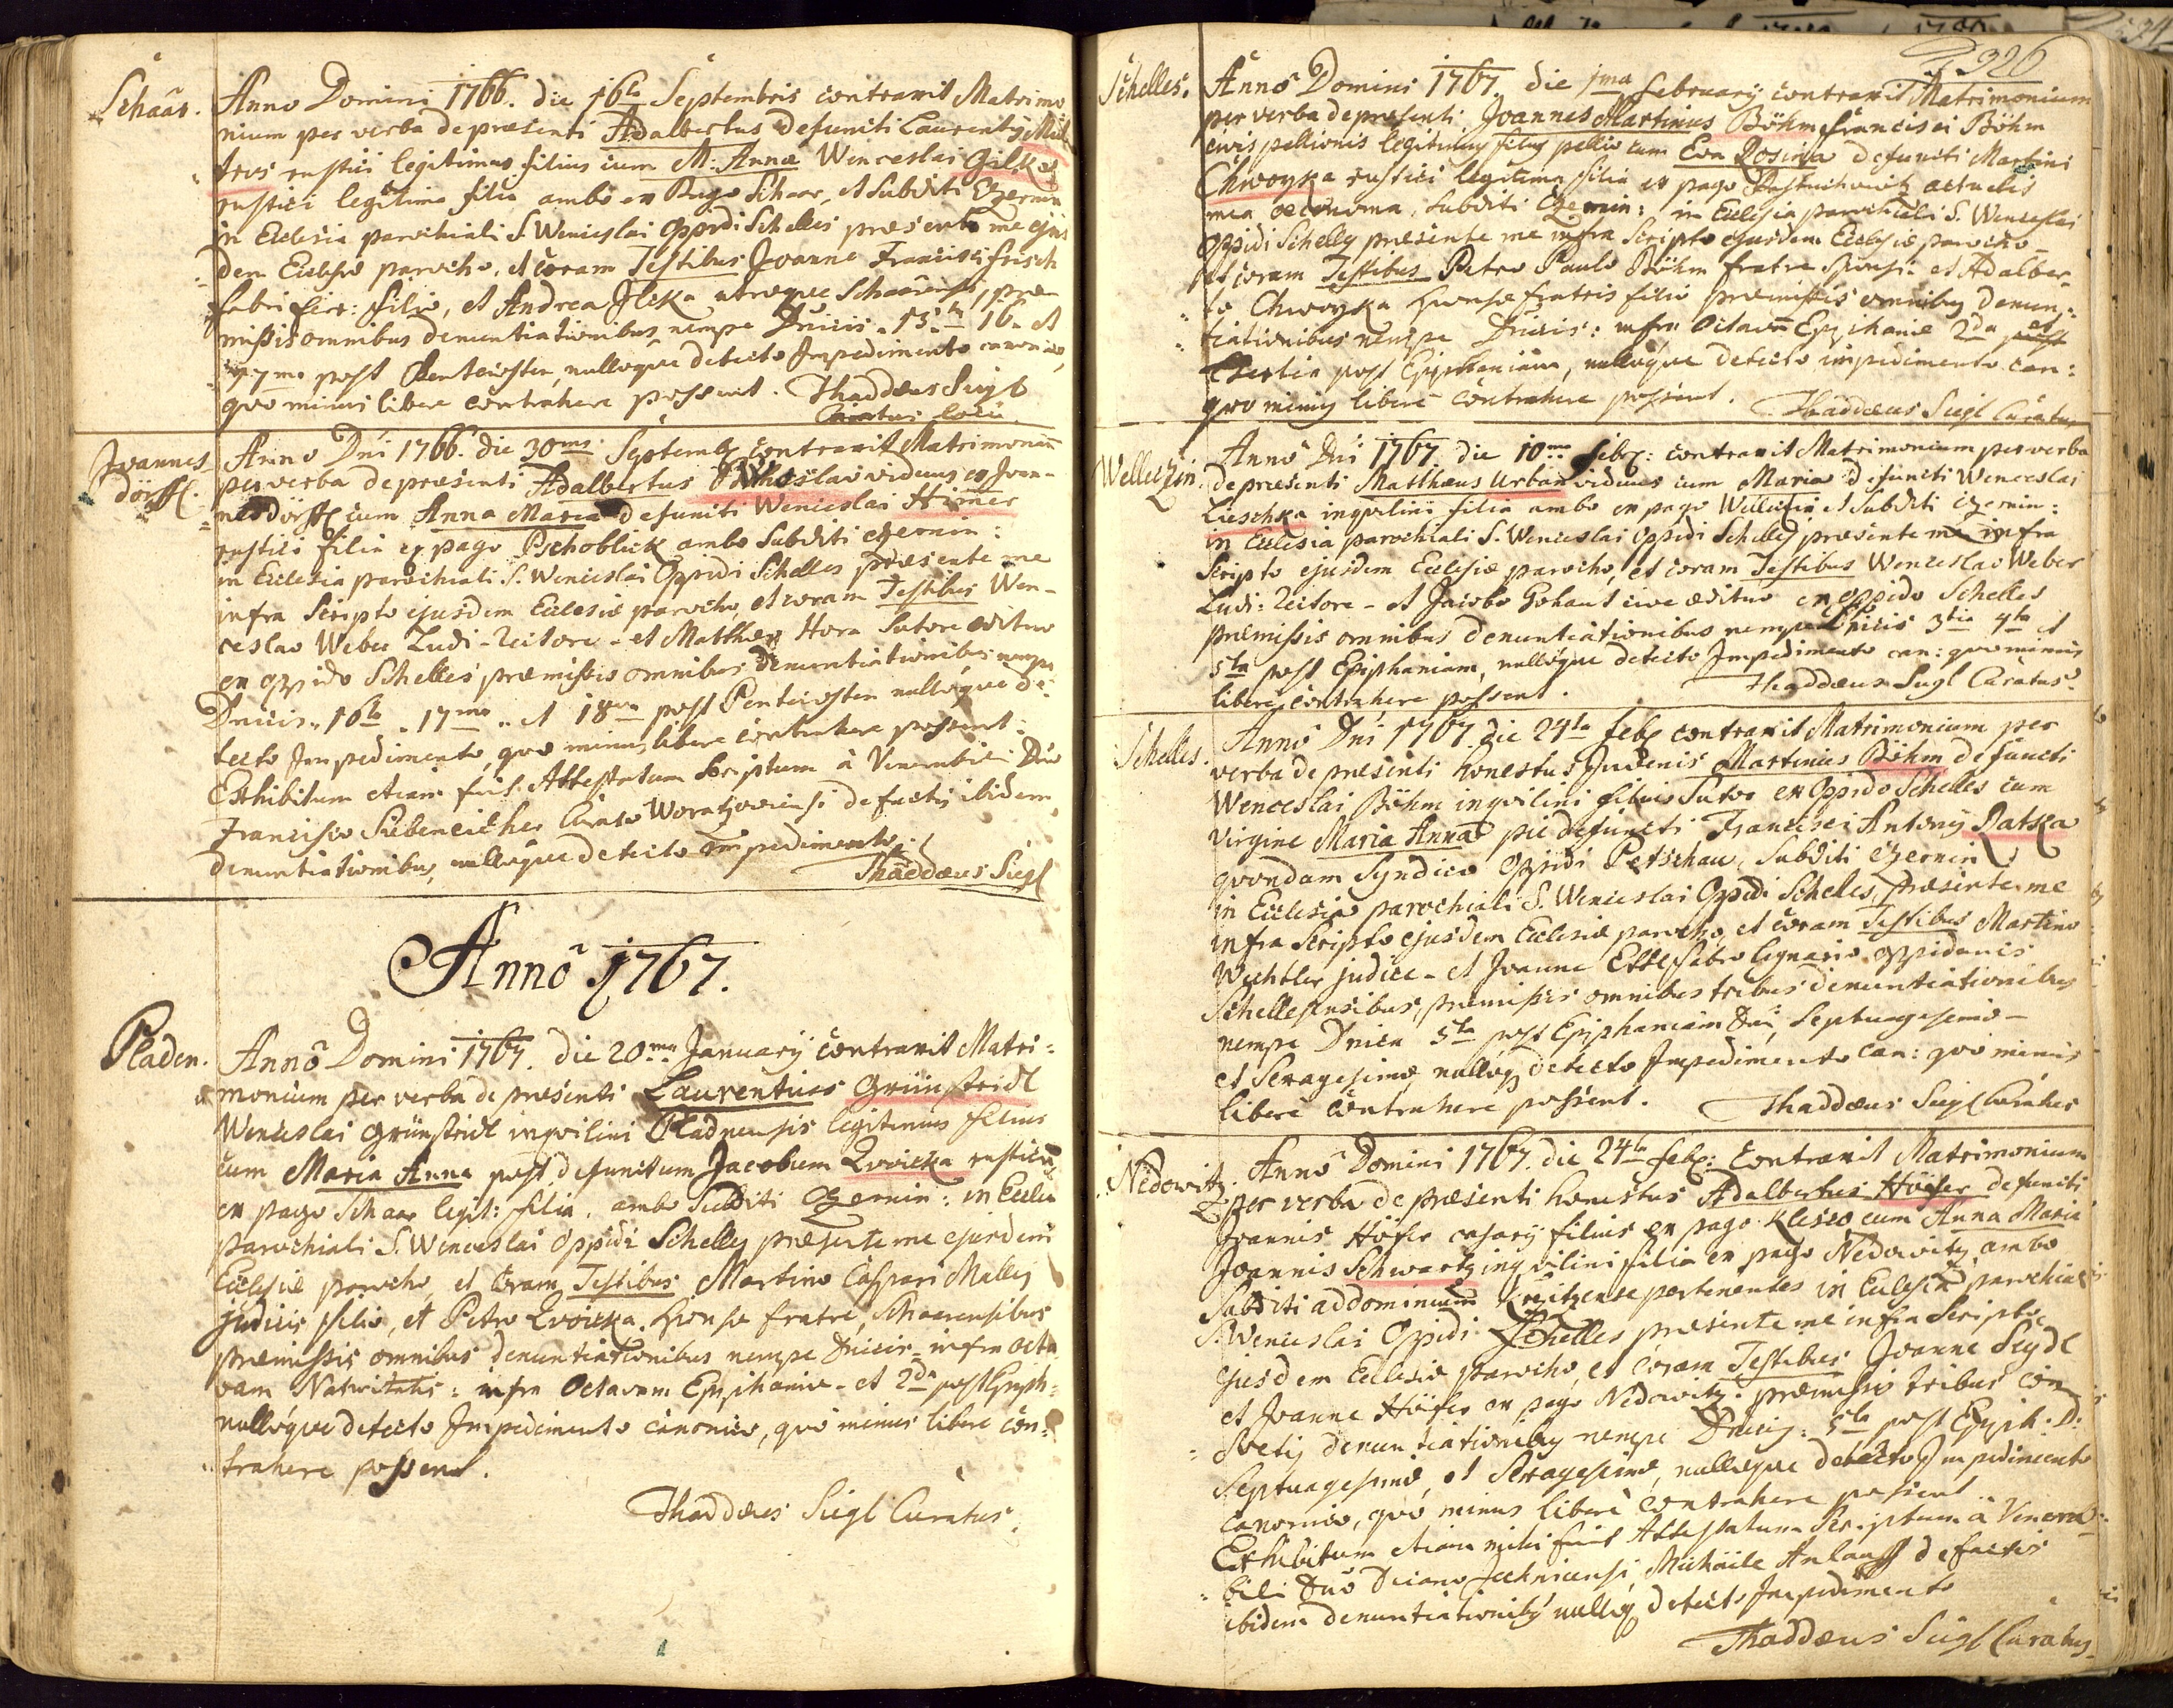 Schaar.
Anno Domini 1766. die 16ta Septembris contraxit Matrimo
nium per verba de præsenti Adalbertus defuncti Laurentÿ
rustici legitimus filius cum M: Anna Wenceslai Gilka
rustici legitima filia ambo ex Pago Schaar, et Subditi Czernin
in Ecclesia parochiali S. Wenceslai Oppidi Schelles præsente me ejus
dem Ecclesiæ parocho, et coram Testibus Joanne Francisci Frisch
fabri fer: filio, et Andrea Jilka utroque Schaarensi, præ
missis omnibus denuntiationibus nempe Dnicis 15ta 16. et
17ma post Pentecosten, nulloque detecto Impedimento canonico,
quo minus libere contrahere possent. Thaddæus Siegl
Curatus loci.
Joannes
dörff.
Anno Dni 1766. die 30ma Septemb contraxit Matrimoniu
per verba de præsenti Adalbertus viduus ex Joan-
nesdörff cum Anna Maria defuncti Wenceslai Hirner
rustici filia ex pago Pschoblick ambo Subditi czernin:
in Ecclesia parochiali S. Wenceslai Oppidi Schelles præsente me
infra Scripto ejusdem Ecclesiæ parocho, et coram Testibus Wen-
ceslao Weber Ludi-Rectore - et Matthæo Hora Sutore ædituo
ex oppido Schelles præmissis omnibus denuntiationibus nempe
Dnicis 16ta 17ma et 18va post Pentecosten nulloque de-
tecto Impedimento, quo minus libere contrahere possent:
Exhibitum etiam fuit Attestatum Scriptum à Venerabili Dno
Francisco Siebeneicher Curato Woratzoviensi de factis ibidem
denuntiationibus, nulloque detecto Impedimento.
Thaddæus Siegl
Anno 1767.
Pladen.
Anno Domini 1767. die 20ma Januarÿ contraxit Matri=
monium per verba de præsenti Laurentius Grünstridl
Wenceslai Grünstridl inqvilini Pladnensis legitimus filius
cum Maria Anna post defunctum Jacobum Zvoicka rusticu
ex pago Schaar legit: filia. ambo Subditi Czernin: in Eccle
parochiali S. Wenceslai Oppidi Schelles præsente me ejusdem
Ecclesiæ parocho, et coram Testibus Martino Caspari Malley
judicis filio, et Petro Zvoicka. Sponsæ fratre, Schaarensibus
præmissis omnibus denuntiationibus nempe Dnicis infra octa
vam Nativitatis: infra Octavam Epiphaniæ - et 2da post Epiph:
nulloque detecto Impedimento canonico, quo minus libere con=
trahere possent.
Thaddæus Siegl Curatus.
326
Schelles.
Anno Domini 1767. die 1ma Februarÿ contraxit Matrimonium
per verba de præsenti Joannes Martinus Böhm Francisci Böhm
civis pellionis legitimus filius pellio cum Eva Rosina defuncti Martini
Chwoyka rustici legitima filia ex pago actualis
mea œconoma, Subditi Czernin: in Ecclesia parochiali S. Wenceslai
Oppidi Schelles præsente me infra Scripto ejusdem Ecclesiæ parocho
et coram Testibus Petro Paulo Böhm fratre Sponsi - et Adalber-
to Chwoyka Sponsæ fratris filio præmissis omnibus denun=
tiationibus nempe Dnicis: infra Octavã Epiphaniæ 2da et
Tertia post Epiphaniam, nulloque detecto impedimento can:
quo minus liberè contrahere possent. Thaddæus Siegl Curatus
Welletzin.
Anno Dni 1767 die 10ma Febr: contraxit Matrimonium per verba
de præsenti Matthæus Urban viduus cum Maria defuncti Wenceslai
Lieschka inqvilini filia ambo ex pago Welletzin et Subditi czernin:
in Ecclesia parochiali S. Wenceslai Oppidi Schelles præsente me infra
Scripto ejusdem Ecclesiæ parocho, et coram Testibus Wenceslao Weber
Ludi: rectore - et Jacobo Gohaut cive ædituo ex oppido Schelles
præmissis omnibus denuntiationibus nempe Dnicis 3tia 4ta et
5ta post Epiphaniam, nulloque detecto Impedimento can: quo minus
libere contrahere possent. Thaddæus Siegl Curatus.
Schelles.
Anno Dni 1767. die 24ta Feb contraxit Matrimonium per
verba de præsenti honestus Juvenis Martinus Böhm defuncti
Wenceslai Böhm inqvilini filius Sutor ex Oppido Schelles cum
Virgine Maria Anna pie defuncti Francisci Antonÿ Ratska
qvondam Syndico Oppidi Petschau, Subditi czernin
in Ecclesia parochiali S. Wenceslai Oppidi Schelles, præsente me
infra Scripto ejusdem Ecclesiæ parocho, et coram Testibus Martino
Wächtler judice - et Joanne Ettl fabro lignario oppidanis
Schellesensibus, præmissis omnibus tribus denuntiationibus
nempe Dnica 5ta post Epiphaniam Dni, Septuagesima -
et Sexagesima, nulloq detecto Impedimento can: quo minus
liberè contrahere possent. Thaddæus Siegl Curatus
Nedowitz.
Anno Domini 1767. die 24ta Feb: Contraxit Matrimonium
per verba de præsenti honestus Adalbertus Höfer defuncti
Joannis Höfer casarÿ filius ex pago Klesco cum Anna Maria
Joannis Schwartz inqvilini filia ex pago Nedowitz, ambo
Subditi ad dominium pertenentes in Ecclesia parochiali
S. Wenceslai Oppidi Schelles præsente me infra Scripto
ejusdem Ecclesiæ parocho, et coram Testibus Joanne Seydl
et Joanne Höfer ex pago Nedowitz. præmissis tribus con
svetis denuntiationibus nempe Dnicis: 5ta post Epiph. D:
Septuagesima, et Sexagesima, nulloque detecto Impedimento
canonico, quo minus liberè contrahere possent
Exhibitum etiam mihi fuit Attestatum Scriptum à Venera-
bili Dno Decano Jechnicensi Michäele Anlauff de factis
ibidem denuntiationibus nulloq detecto Impedimento
Thaddæus Siegl Curatus